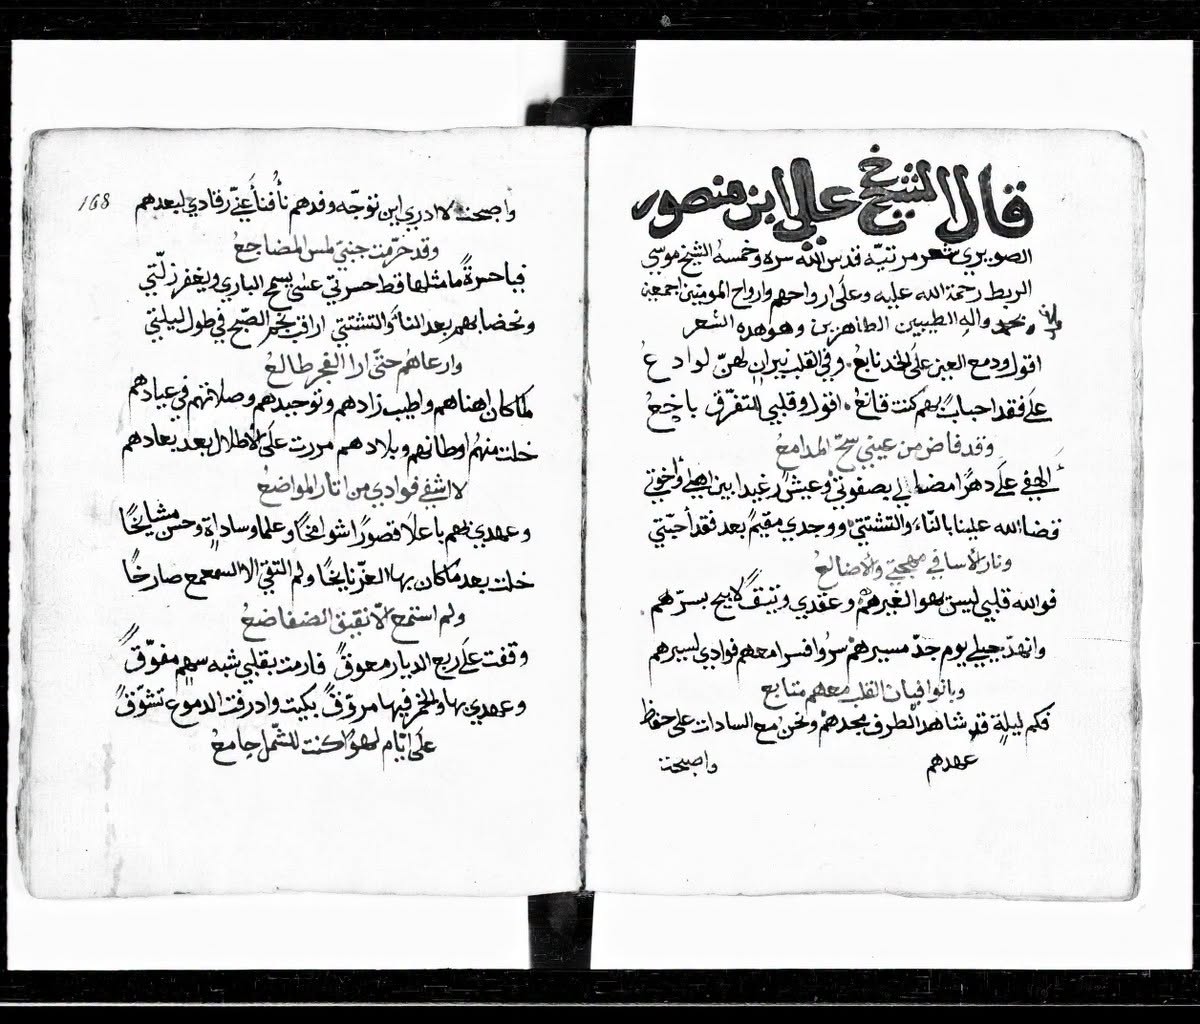 قال الشيخ علي ابن منصور
الصويري شعر مرتيّة قدس الله سره وخمسه الشيخ موسي
الربط رحمة الله عليه وعلى ارواحهم وارواح المومنين اجمعين
بمحمد واله الطيبين الطاهرين وهو هده الشعر
اقول ودمع العين على الخد نابع وفي القلب نيران لهنّ لوادع
على فقد احباب بهم كنت قانع اقول وقلبي التفرّق باخع
وقد فاض من عيني سحّ المدامع
الهفي على دهرًا مضا لي بصفوتي وعيش رغيدا بين اهلي وأخوتي
قضا الله علينا بالنّاء والتشتتي ووجدي مقيمً بعد فقد أحبّتي
ونار الأسا في مهجتي والأضالع
فوالله قلبي ليس يهوا لغيرهم وعقدي وثيق لايبح بسرّهم
وانهدّ حيلي يوم جدّ مسيرهم سرُوا فسرا معهم فوادي لسيرهم
وبانوا فبان القلب معهم متابع
فكم ليلة قد شاهد الطرف مجدهم ونحن مع السادات على حفاظ
عهدهم
واصبحت
168
واصبحت لا ادري اين توجّه وفدهم نأُفنأَ عنّي رقادي لبعدهم
وقد حرّمت جنبيّ لمس المضاجع
فيا حسرةً ما مثلها قط حسرتي عسى يسمح الباري ويغفر زلّتي
ونحضا بهم بعد النأ والتشتتي اراقب نجم الصّبح في طول ليلتي
وارعاهم حتّى ارا الفجر طالع
لما كان اهناهم واطيب زادهم وتوحيدهم وصلاتهم في عيادهم
خلت منهم اوطانهم وبلادهم مررت على الأطلال بعد بعادهم
لا اشفي فوادي من اثار المواضع
وعهدي بهم باعلا قصورًا شوامخًا وعلما وساداةٍ وحسن مشايخًا
خلت بعد ما كان بها العزّ نايخًا ولم التقي الا السمعمع صارخًا
ولم استمع الّا نقيق الضفاضع
وقفت على ربع الديار معوقً فارمت بقلبي شبه سهم مفوّقً
وعهدي بها والخمر فيها مروّقً بكيت وادرفت الدموع تشوّقً
على ايّام لهوًا كنت للشمل جامع